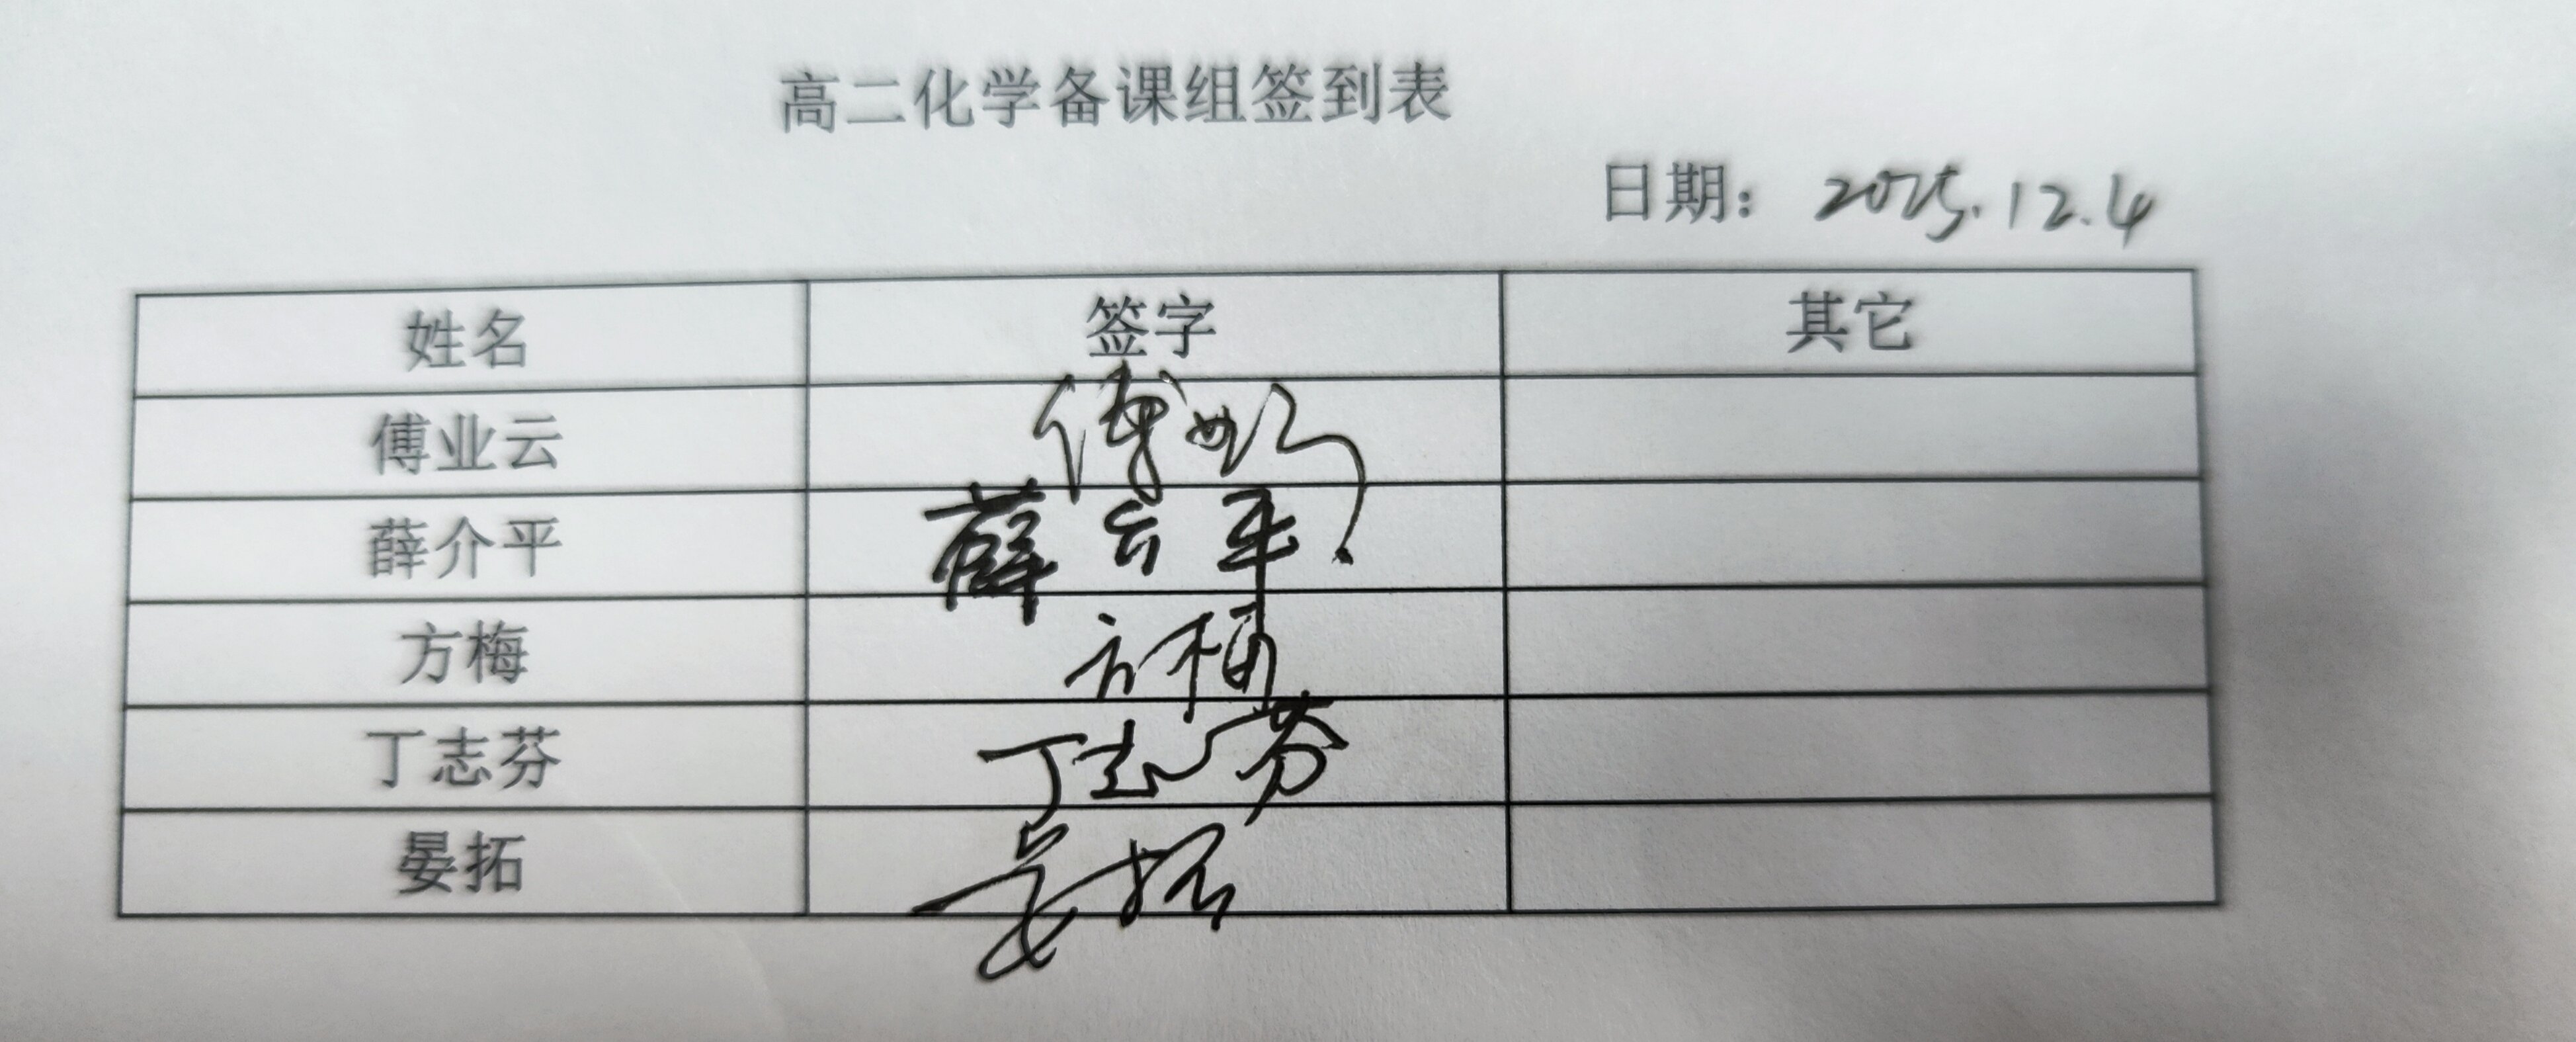 高二化学备课组签到表
日期：2025.12.4
姓名 签字 其它
傅业云 傅业云
薛介平 薛介平
方梅 方梅
丁志芬 丁志芬
晏拓 晏拓